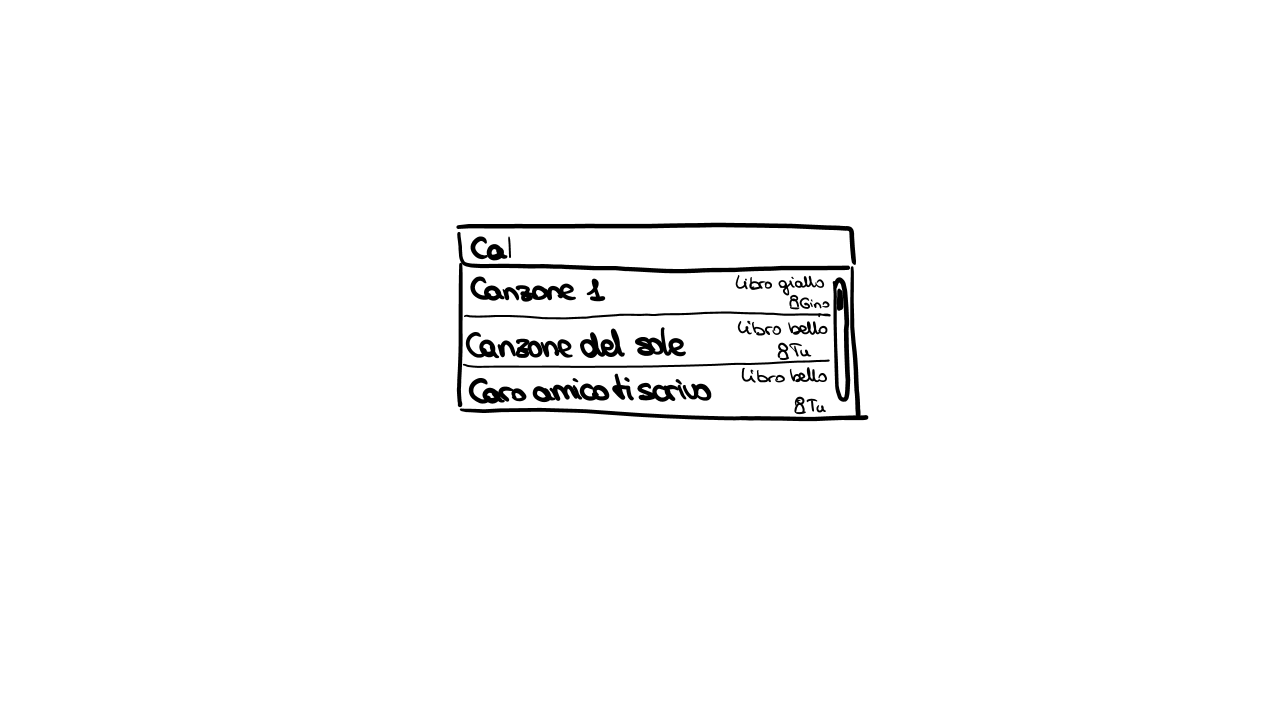 Ca
Canzone 1
Libro giallo
Gino
Canzone del sole
Libro bello
Tu
Caro amico ti scrivo
Libro bello
Tu